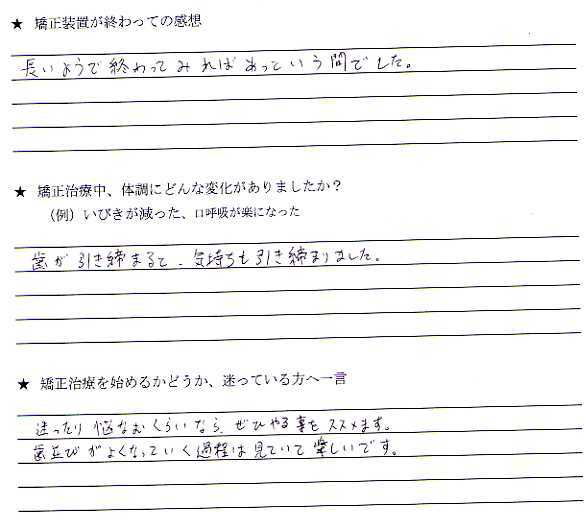 ★ 矯正装置が終わっての感想
長いようで終わってみればあっという間でした。
★ 矯正治療中、体調にどんな変化がありましたか?
（例）いびきが減った、口呼吸が楽になった
歯が引き締まると、気持ちも引き締まりました。
★ 矯正治療を始めるかどうか、迷っている方へ一言
迷ったり悩なむくらいなら、ぜひやる事をススメます。
歯並びがよくなっていく過程は見ていて楽しいです。